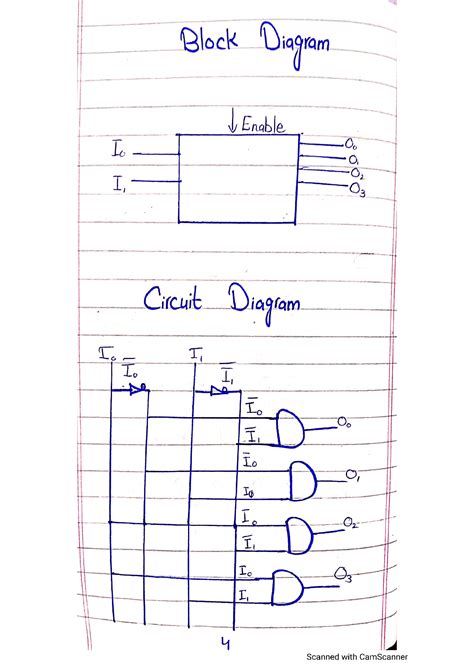 Block Diagram
↓ Enable
I₀
O₀
O₁
I₁
O₂
O₃
Circuit Diagram
I₀ I̅₀ I₁ I̅₁
I̅₀
I̅₁ O₀
I̅₀
I₀ O₁
I̅₀ O₂
I̅₁
I₀ O₃
I₁
4
Scanned with CamScanner